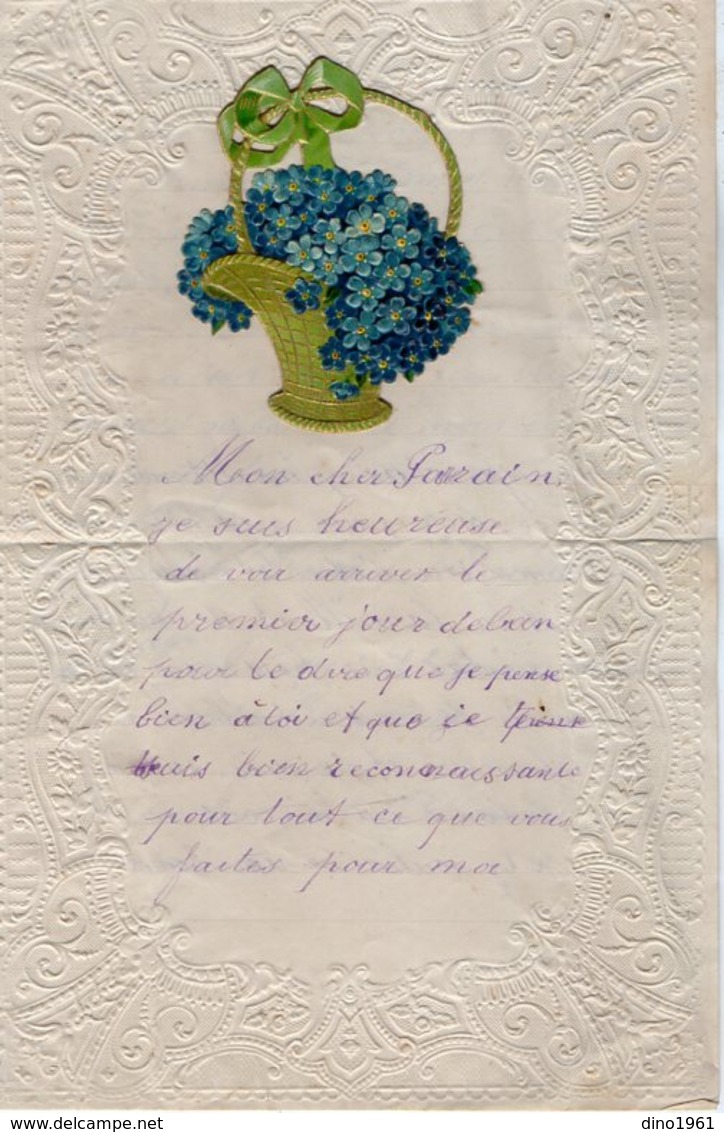 Mon cher Parain
je suis heureuse
de voir arriver le
premier jour de lan
pour te dire que je pense
bien à toi et que je
suis bien reconnaissante
pour tout ce que vous
faites pour moi
delcampe.net
dino1961